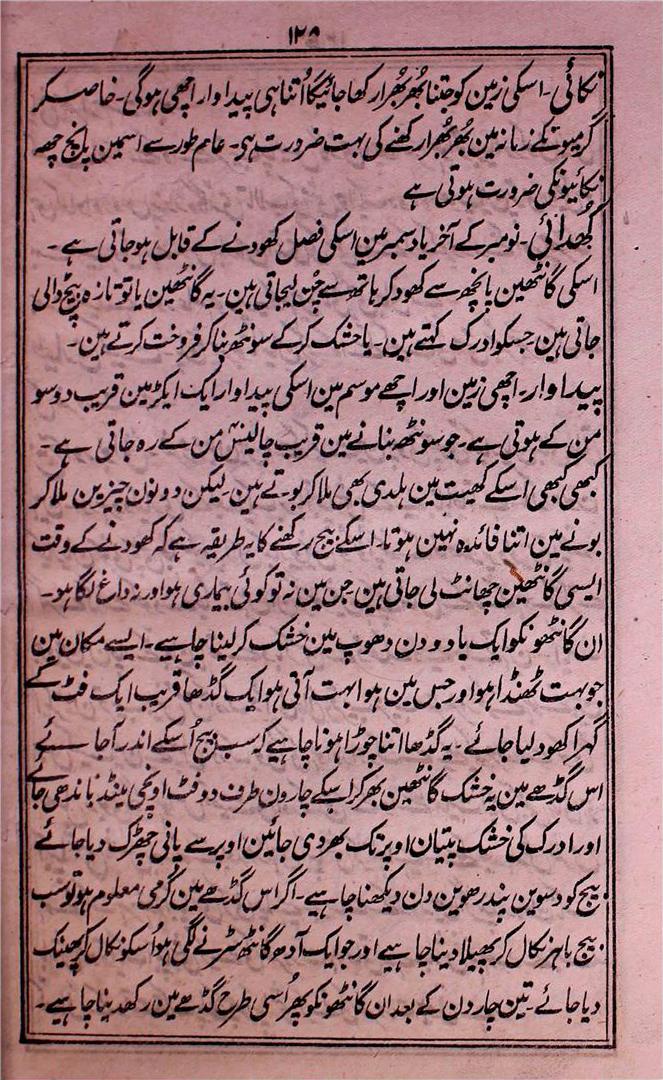 ۱۲۹
نکائی۔ اسکی زمین کو جتنا بھُربھُرا رکھا جائیگا اُتنا ہی پیداوار اچھی ہوگی۔ خاصکر
گرمیونکے زمانہ مین بھُربھُرا رکھنے کی بہت ضرورت ہی۔ عام طور سے اسمین پانچ چھہ
نکائیونکی ضرورت ہوتی ہے
کھُدائی۔ نومبر کے آخر یا دسمبر مین اسکی فصل کھودنے کے قابل ہوجاتی ہے۔
اسکی گانٹھین پانچھ سے کھود کر ہاتھ سے چُن لیجاتی ہین۔ یہ گانٹھین یا تو تازہ بیچ ڈالی
جاتی ہین جسکو ادرک کہتے ہین۔ یا خشک کرکے سونٹھ بناکر فروخت کرتے ہین۔
پیداوار۔ اچھی زمین اور اچھے موسم مین اسکی پیداوار ایک ایکڑ مین قریب دوسو
من کے ہوتی ہے۔ جو سونٹھ بنانے مین قریب چالیس من کے رہ جاتی ہے۔
کبھی کبھی اسکے کھیت مین ہلدی بھی ملاکر بوتے ہین۔ لیکن دونون چیزین ملاکر
بونے مین اتنا فائدہ نہین ہوتا۔ اسکے بیج رکھنے کا یہ طریقہ ہے کہ کھودنے کے وقت
ایسی گانٹھین چھانٹ لی جاتی ہین جن مین نہ تو کوئی بیماری ہو اور نہ داغ لگا ہو۔
ان گانٹھونکو ایک یا دو دن دھوپ مین خشک کرلینا چاہیے۔ ایسے مکان مین
جو بہت ٹھنڈا ہو اور جس مین ہوا بہت آتی ہو ایک گڈھا قریب ایک فٹ کے
گہرا کھود لیا جائے۔ یہ گڈھا اتنا چوڑا ہونا چاہیے کہ سب بیج اُسکے اندر آجائے
اس گڈھے مین یہ خشک گانٹھین بھر کر اسکے چارون طرف دو فٹ اونچی مینڈ باندھی جائے
اور ادرک کی خشک پتیان اوپر تک بھردی جائین اوپر سے پانی چھڑک دیا جائے
بیج کو دسوین پندرھوین دن دیکھنا چاہیے۔ اگر اس گڈھے مین گرمی معلوم ہو تو سب
بیج باہر نکال کر پھیلا دینا چاہیے اور جو ایک آدھ گانٹھ سڑنے لگی ہو اُسکو نکال کر پھینک
دیا جائے۔ تین چار دن کے بعد ان گانٹھونکو پھر اُسی طرح گڈھے مین رکھدینا چاہیے۔